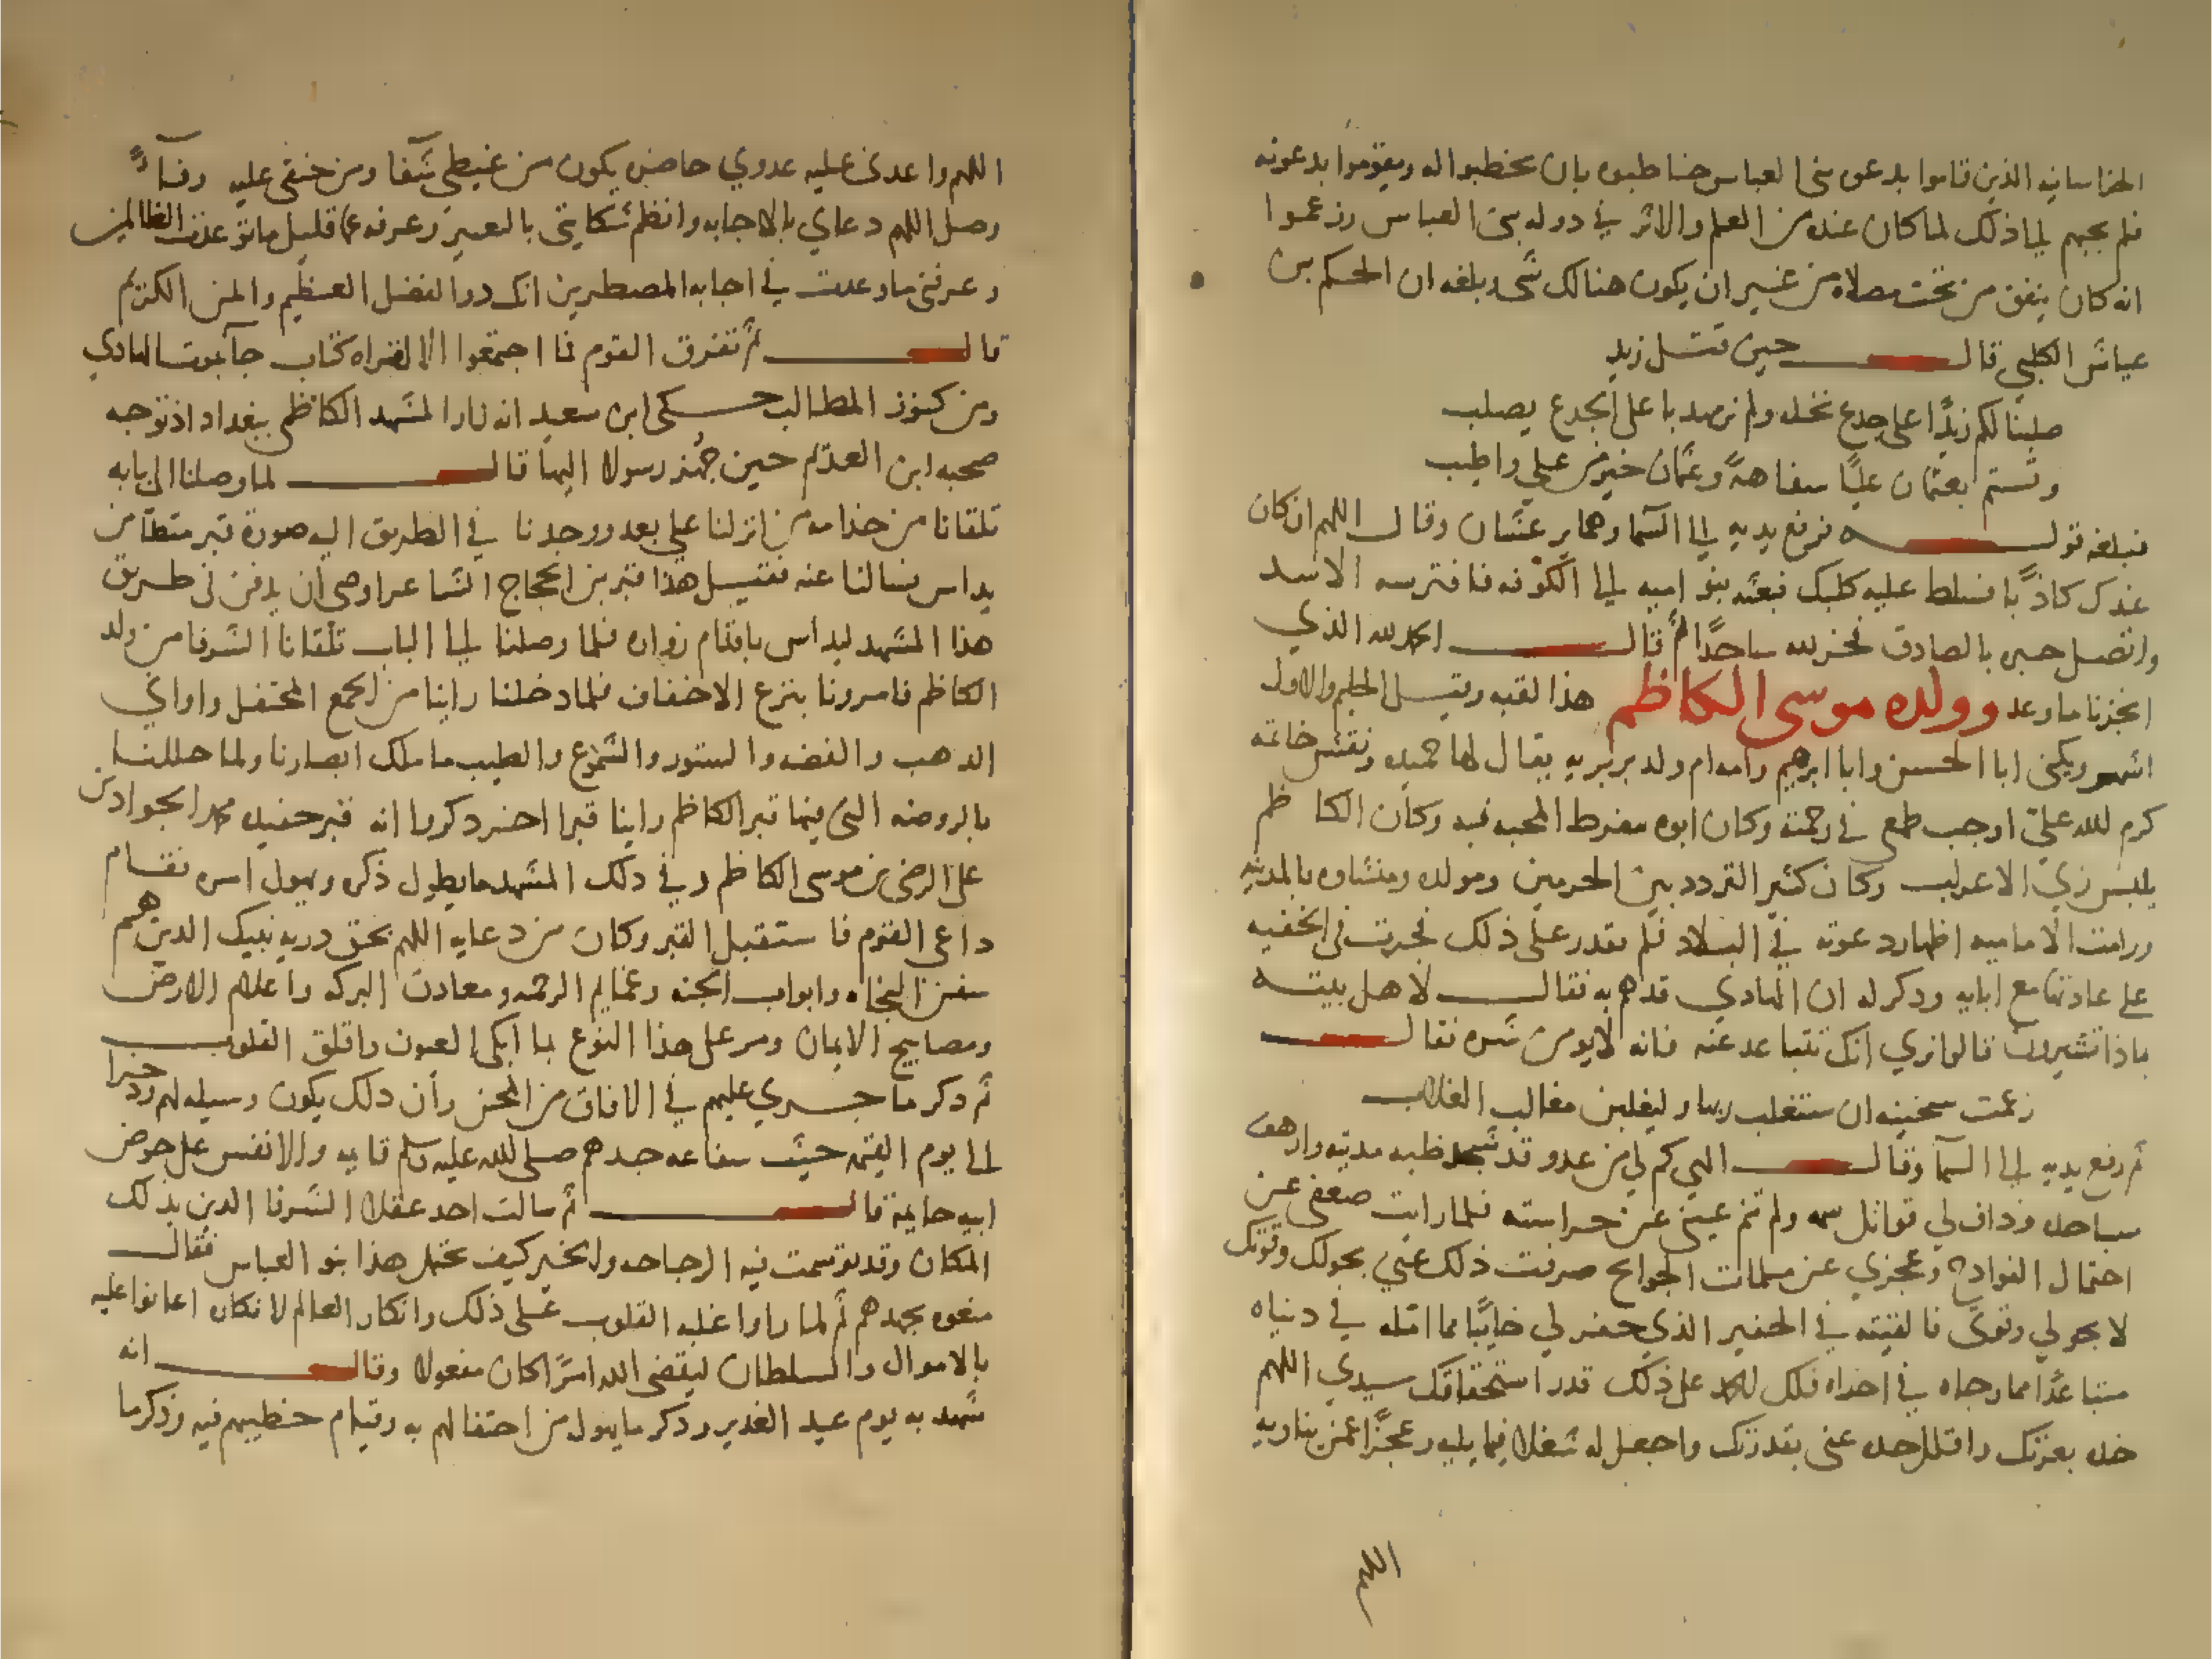 الخراسانيه الذين قاموا بدعوه بني العباس خاطبوه بان يخطبوا له ويقوموا بدعوته
فلم يجبهم لي ذلك لما كان عنده من العلم والاثر في دوله بني العباس وزعموا
انه كان ينفق من تحت مصلاه من غير ان يكون هنالك شي وبلغه ان الحكم بن
عياش الكلبي قال حين قتل زيد
صلبنا لكم زيدًا على جدع نخله ولم نر مهديا على الجدع يصلب
وقستم بعثمان عليًا سفاهةً وعثمان خير من علي واطيب
فبلغه قوله فرفع يديه الي السما وهما يرعشان وقال اللهم ان كان
عندك كاذبًا فسلط عليه كلبك فبعثه بنو اميه الي الكوفه فافترسه الاسد
واتصل خبره بالصادق فخر لله ساجدًا ثم قال الحمد لله الذي
انجزنا ما وعد وولده موسى الكاظم هذا لقبه وقيل الحليم والاول
اشهر ويكنى ابا الحسن وابا ابرهيم وامه ام ولد بربريه يقال لها حميده ونقش خاتمه
كرم الله عليّ اوجب طمعي في رحمته وكان ابوه مفرط المحبه فيه وكان الكاظم
يلبس زي الاعراب وكان كثير التردد بين الحرمين ومولده ومنشاوه بالمدينه
ورامت الاماميه اظهار دعوته في البلاد فلم تقدر على ذلك فجرت في الخفيه
على عادتها مع ابايه وذكر له ان الهادي قد هم به فقال لاهل بيته
ماذا تشيرون قالوا نري انك تتباعد عنه فانه لا يومن شره فقال
زعمت سخينه ان ستغلب ربها وليغلبن مغالب الغلاب
ثم رفع يديه الي السما وقال الهي كم لي من عدو قد شحد ظبه مديته وارهف
شبا حده وداف لي قواتل سمه ولم تنم عيني عن حراسته فلما رايت ضعفي عن
احتمال الفوادح وعجزي عن ملمات الجوايح صرفت ذلك عني بحولك وقوتك
لا بحولي وقوتى فالقيته في الحفير الذي حفر لي خايبًا مما امله في دنياه
متباعدًا مما رجاه في اخراه فلك الحمد على ذلك قدر استحقاقك سيدي اللهم
خده بعزتك وافلل حده عني بقدرتك واجعل له شغلا فيما يليه وعجزًا عمن يناويه
اللهم
اللهم واعدني عليه عدوي حاضره يكون من غيظي شفا ومن حنقي عليه وفاءً
وصل اللهم دعاي بالاجابه وانظم شكايتي بالتغيير وعرفه عما قليل ما توعدت الظالمين
وعرفني ما وعدت في اجابه المضطرين انك ذو الفضل العظيم والمن الكريم
قال ثم تفرق القوم فما اجتمعوا الا لقراه كتاب جا بموت الهادي
ومن كنوز المطالب حكى ابن سعيد انه زار المشهد الكاظمي ببغداد اذ توجه
صحبه ابن العديم حين جُهز رسولا اليها قال لما وصلنا الى بابه
تلقانا من خدامه من انزلنا على بعد ووجدنا في الطريق اليه صورة قبر متطامن
يداس فسالنا عنه فقيل هذا قبر بن الحجاج الشاعر اوصى أن يدفن في طريق
هذا المشهد ليداس باقدام زواره فلما وصلنا الي الباب تلقانا الشرفا من ولد
الكاظم فامرونا بنزع الاخفاف فلما دخلنا راينا من الجمع المحتفل واواني
الدهب والفضه والستور والشموع والطيب ما ملك ابصارنا ولما حللنا
بالروضه التي فيها قبر الكاظم راينا قبرا اخر ذكروا انه قبر حفيده محمد الجواد بن
على الرضى بن موسى الكاظم وفي دلك المشهد ما يطول ذكره ويهول امره فقام
داعي القوم فاستقبل القبر وكان من دعايه اللهم بحق دريه نبيك الدين هم
سفن النجاه وابواب الجنه وغمايم الرحمه ومعادن البركه واعلام الارض
ومصابيح الايمان ومر على هذا النوع بما ابكى العيون واقلق القلوب
ثم دكر ما جري عليهم في الافاق من المحن وأن دلك يكون وسيله لهم ودخرا
الي يوم القيمه حيث شفاعه جدهم صلى الله عليه وسلم قايمه والانفس على حوض
ابيه حايمة قال ثم سالت احد عقلا الشرفا الدين بدلك
المكان وقد توسمت فيه الرجاحه والخير كيف تحمل هذا بنو العباس فقال
منعوه بجهدهم ثم لما راوا غلبه القلوب على ذلك وانكار العالم لانكاره اعانوا عليه
بالاموال والسلطان ليقضي الله امرًا كان مفعولا وقال انه
شهد به يوم عيد الغدير ودكر ما يهول من احتفالهم به وقيام خطيبهم فيه وذكر ما